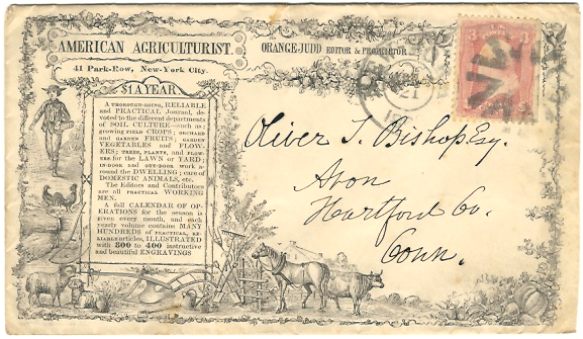 AMERICAN AGRICULTURIST.
ORANGE JUDD EDITOR & PROPRIETOR
41 Park-Row, New-York City.
$1 A YEAR
A THOROUGH-GOING, RELIABLE
and PRACTICAL Journal, de-
voted to the different departments
of SOIL CULTURE—such as;
growing FIELD CROPS; ORCHARD
and GARDEN FRUITS; GARDEN
VEGETABLES and FLOW-
ERS; TREES, PLANTS, and FLOW-
ERS for the LAWN or YARD;
IN-DOOR and OUT-DOOR work a-
round the DWELLING; care of
DOMESTIC ANIMALS, etc.
The Editors and Contributors
are all PRACTICAL WORKING
MEN.
A full CALENDAR OF OP-
ERATIONS for the season is
given every month, and each
yearly volume contains MANY
HUNDREDS of PRACTICAL, RE-
LIABLE articles, ILLUSTRATED
with 300 to 400 instructive
and beautiful ENGRAVINGS
3 U 3
21
Oliver T. Bishop Esq.
Avon
Hartford Co.
Conn.